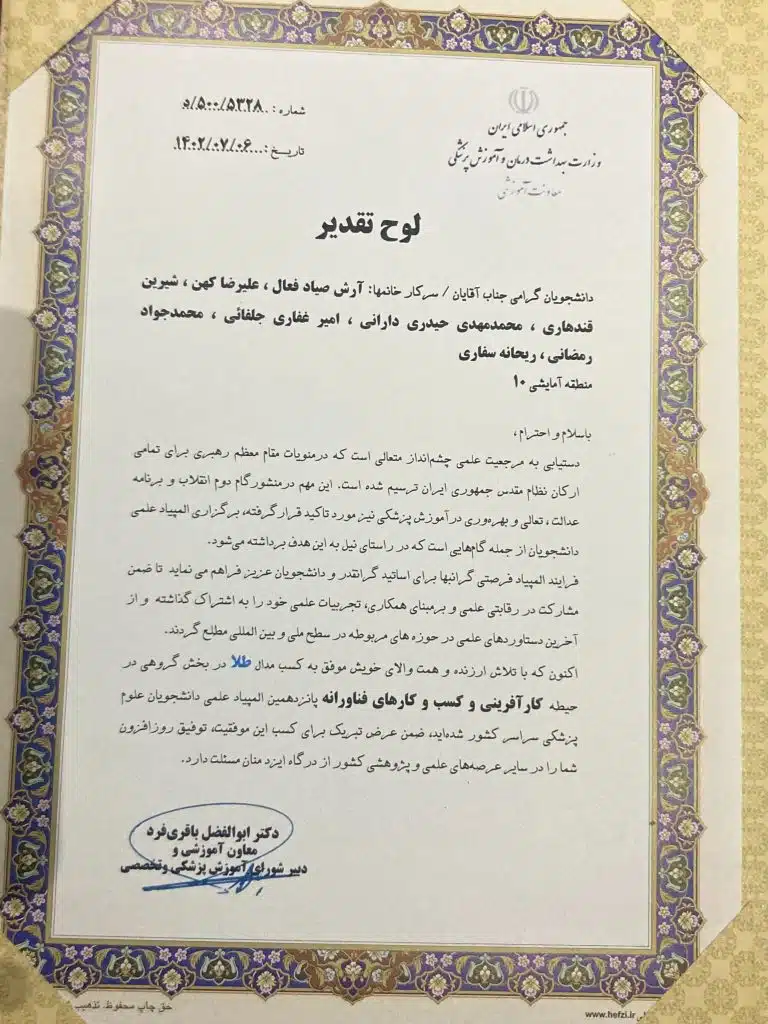 جمهوری اسلامی ایران
وزارت بهداشت درمان و آموزش پزشکی
معاونت آموزشی
شماره: ۵۰۰/۵۳۲۸/د
تاریخ: ۱۴۰۲/۰۷/۰۶
لوح تقدیر
دانشجویان گرامی جناب آقایان / سرکار خانمها: آرش صیاد فعال ، علیرضا کهن ، شیرین
قندهاری ، محمدمهدی حیدری دارانی ، امیر غفاری جلفائی ، محمدجواد
رمضانی ، ریحانه سفاری
منطقه آمایشی ۱۰
باسلام و احترام،
دستیابی به مرجعیت علمی چشم‌انداز متعالی است که درمنویات مقام معظم رهبری برای تمامی
ارکان نظام مقدس جمهوری ایران ترسیم شده است. این مهم درمنشورگام دوم انقلاب و برنامه
عدالت ، تعالی و بهره‌وری درآموزش پزشکی نیز مورد تاکید قرار گرفته، برگزاری المپیاد علمی
دانشجویان از جمله گام‌هایی است که در راستای نیل به این هدف برداشته می‌شود.
فرایند المپیاد فرصتی گرانبها برای اساتید گرانقدر و دانشجویان عزیز فراهم می نماید تا ضمن
مشارکت در رقابتی علمی و برمبنای همکاری، تجربیات علمی خود را به اشتراک گذاشته و از
آخرین دستاوردهای علمی در حوزه های مربوطه در سطح ملی و بین المللی مطلع گردند.
اکنون که با تلاش ارزنده و همت والای خویش موفق به کسب مدال طلا در بخش گروهی در
حیطه کارآفرینی و کسب و کارهای فناورانه پانزدهمین المپیاد علمی دانشجویان علوم
پزشکی سراسر کشور شده‌اید، ضمن عرض تبریک برای کسب این موفقیت، توفیق روزافزون
شما را در سایر عرصه‌های علمی و پژوهشی کشور از درگاه ایزد منان مسئلت دارد.
دکتر ابوالفضل باقری‌فرد
معاون آموزشی و
دبیر شورای آموزش پزشکی وتخصصی
حق چاپ محفوظ. تذهیب
www.hefzi.ir